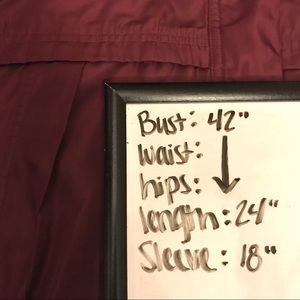 Bust: 42"
waist:
hips: ↓
length: 24"
Sleeve: 18"